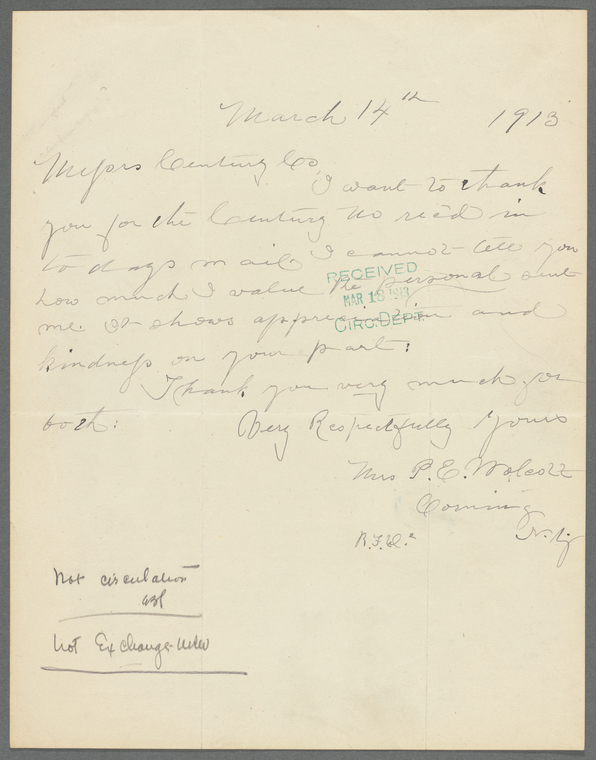 March 14th 1913
Messrs Century Co,
I want to thank
you for the Century No rec'd in
to days mail I cannot tell you
how much I value the personal sent
me. It shows appreciation and
kindness on your part:
Thank you very much for
both:
Very Respectfully Yours
Mrs P. E. Wolcott
Corning
N. Y.
R.F.D.2
RECEIVED
MAR 18 1913
CIRC. DEPT.
Not circulation
Not Exchange